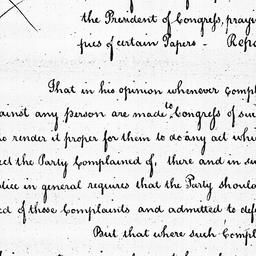 the President of Congress, prayi
pies of certain Papers - Repo
That in his opinion whenever Compl
ainst any person are made to Congress of suc
to render it proper for them to do any act whi
ect the Party Complained of, there and in su
stice in general requires that the Party shoul
ed of those Complaints and admitted to def
But that where such Compl